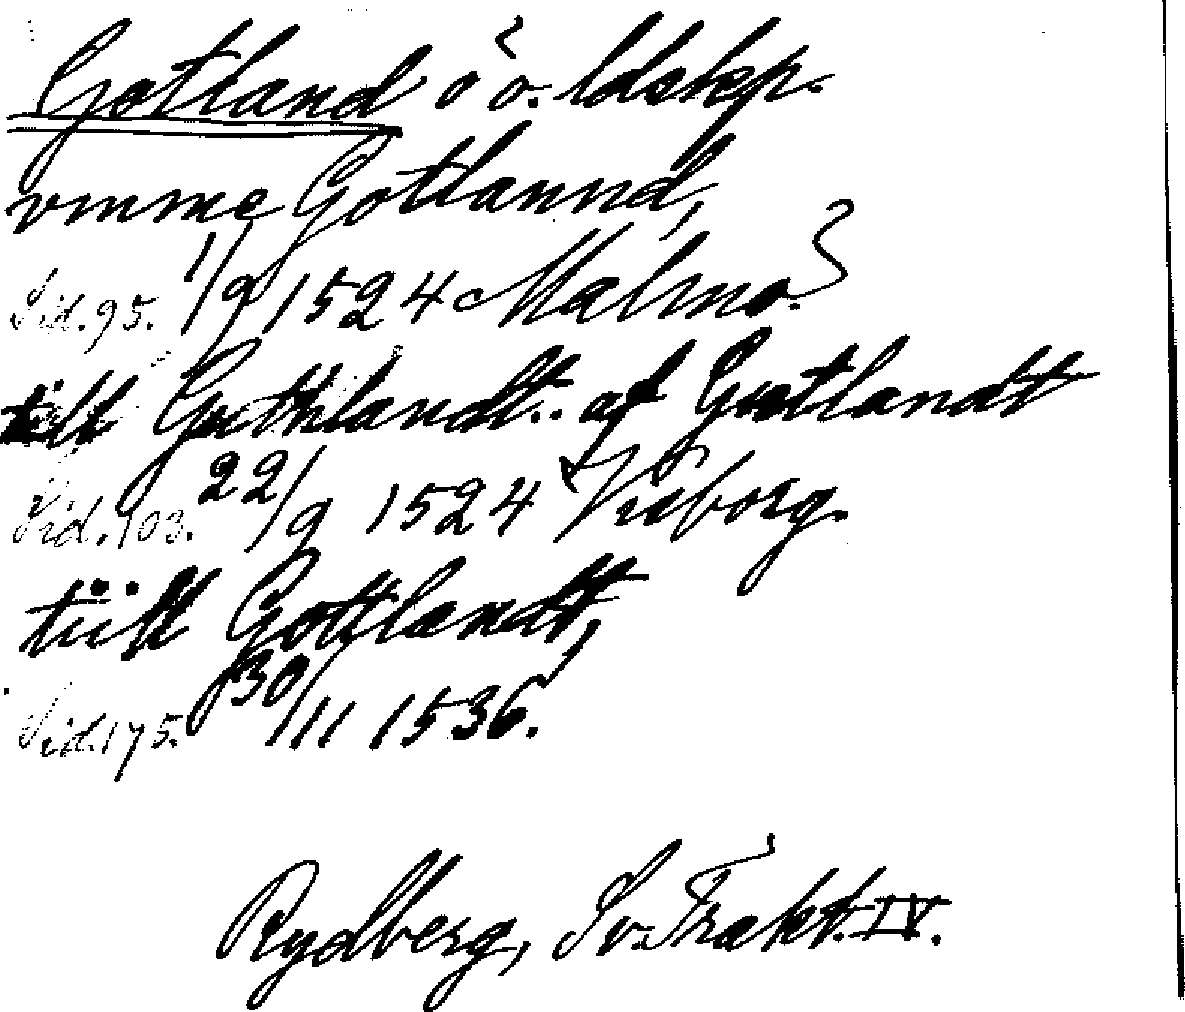 Gotland ö o. ldskp.
vmme Gotlannd,
Sid. 95. 1/9 1524 Malmö.
till Guthlandt.. af Gutlandt
Sid. 103. 22/9 1524 Viborg.
tiill Gottlandt,
Sid. 175. 30/11 1536.
Rydberg, Sv. Trakt. IV.